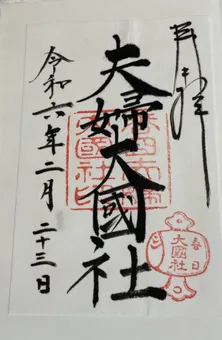 奉拝
夫婦大國社
令和六年二月二十三日
春日
大國社